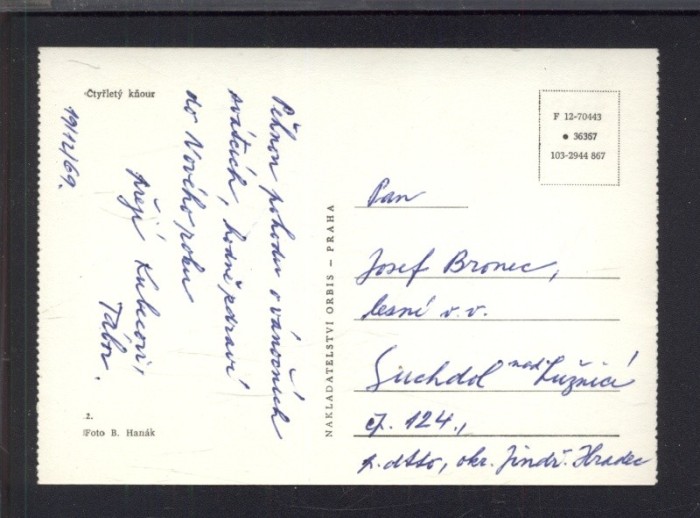 Čtyřletý kňour
Pěknou pohodu o vánočních
svátcích, hodně zdraví
do Nového roku
přejí Kubcovi,
Tábor.
19/12/69.
2.
Foto B. Hanák
NAKLADATELSTVÍ ORBIS – PRAHA
F 12-70443
● 36357
103-2944 867
Pan
Josef Bronec,
lesní v.v.
Suchdol nad Lužnicí
čj. 124.,
p. dtto, okr. Jindř. Hradec